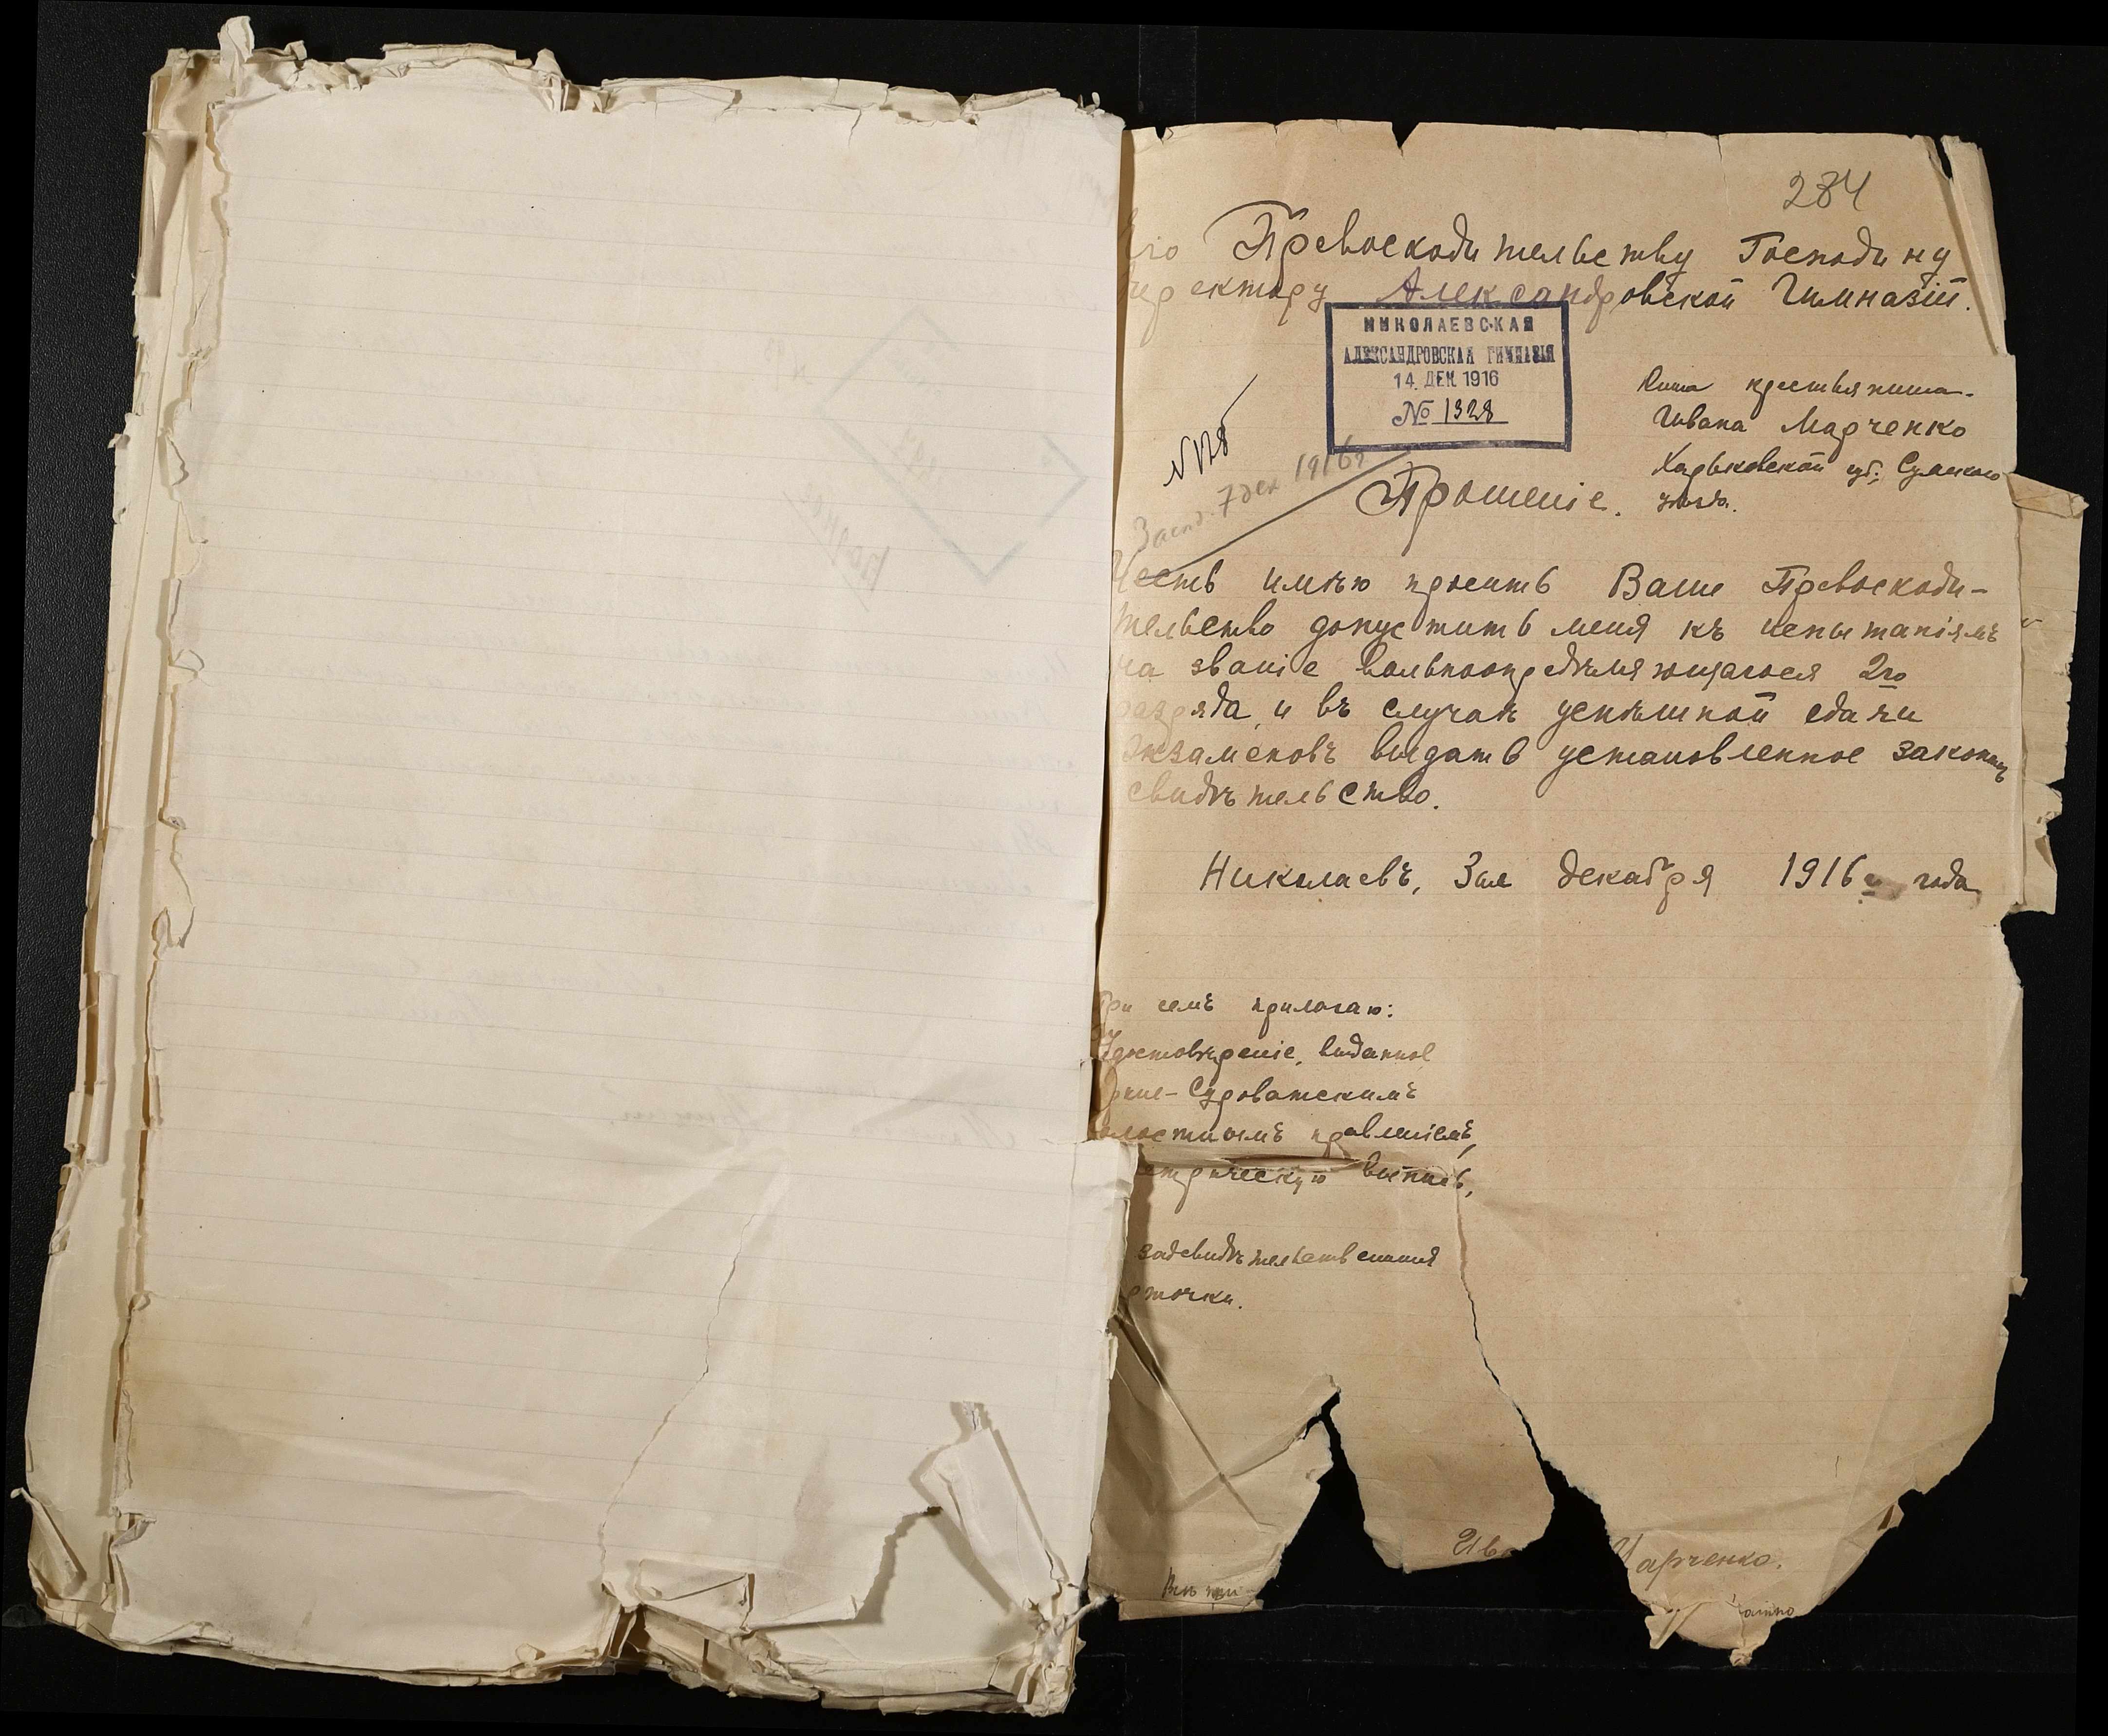 284
Его Превосходительству Господину
Директору Александровской Гимназіи.
НИКОЛАЕВСКАЯ
АЛЕКСАНДРОВСКАЯ ГИМНАЗІЯ
14. ДЕК 1916
№ 1328
крестьянина
Ивана Марченко
Харьковской губ; Сумского
уѣзда.
N 128
7 дек 1916 г
Прошеніе.
Честь имѣю просить Ваше Превосходи-
тельство допустить меня къ испытаніямъ
на званіе вольноопредѣляющагося 2го
разряда, и въ случаѣ успѣшной сдачи
экзаменовъ выдать установленное закономъ
свидѣтельство.
Николаевъ, 3го декабря 1916 г года
При семъ прилагаю:
Удостовѣреніе, выданное
Сыроватскимъ
волостнымъ правленіемъ,
етрическую выпись,
засвидѣтельствованныя
рточки.
Ив арченко.